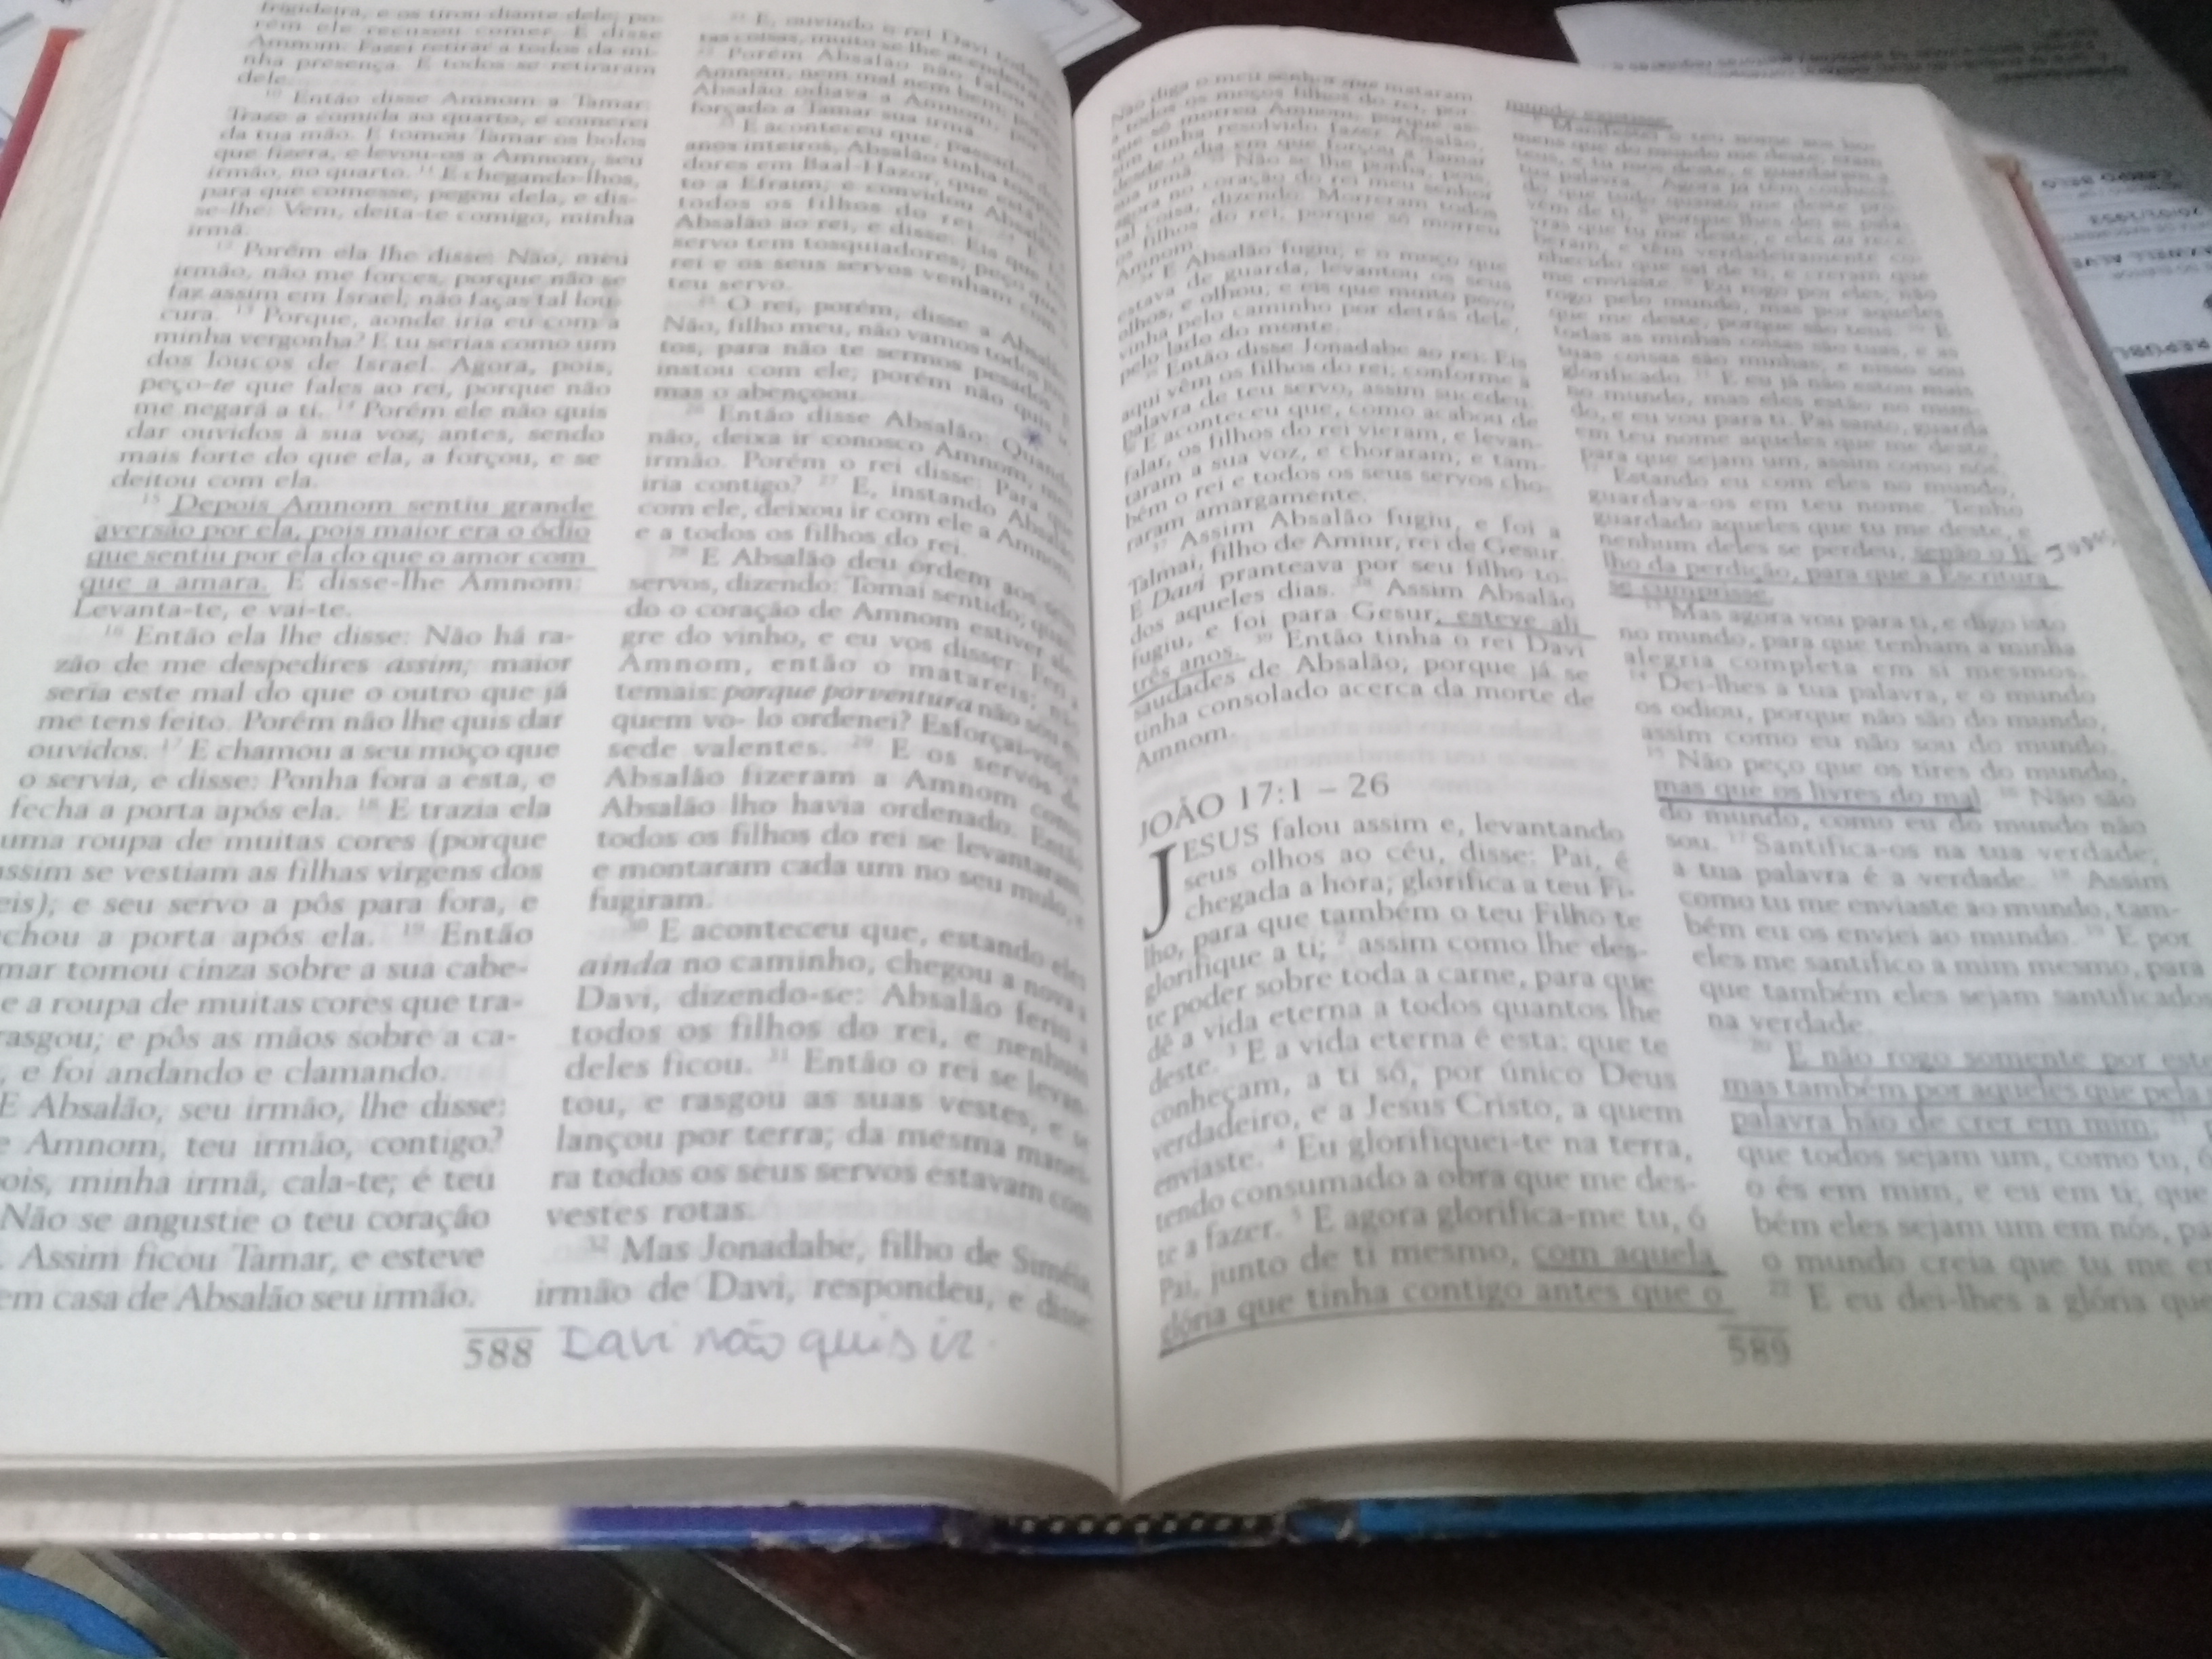 frigideira, e os tirou diante dele; po-
rém ele recusou comer. E disse
Amnom: Fazei retirar a todos da mi-
nha presença. E todos se retiraram
dele.
10 Então disse Amnom a Tamar:
Traze a comida ao quarto, e comerei
da tua mão. E tomou Tamar os bolos
que fizera, e levou-os a Amnom, seu
irmão, no quarto. 11 E chegando-lhos,
para que comesse, pegou dela, e dis-
se-lhe: Vem, deita-te comigo, minha
irmã.
12 Porém ela lhe disse: Não, meu
irmão, não me forces, porque não se
faz assim em Israel; não faças tal lou-
cura. 13 Porque, aonde iria eu com a
minha vergonha? E tu serias como um
dos loucos de Israel. Agora, pois,
peço-te que fales ao rei, porque não
me negará a ti. 14 Porém ele não quis
dar ouvidos à sua voz; antes, sendo
mais forte do que ela, a forçou, e se
deitou com ela.
15 Depois Amnom sentiu grande
aversão por ela, pois maior era o ódio
que sentiu por ela do que o amor com
que a amara. E disse-lhe Amnom:
Levanta-te, e vai-te.
16 Então ela lhe disse: Não há ra-
zão de me despedires assim; maior
seria este mal do que o outro que já
me tens feito. Porém não lhe quis dar
ouvidos. 17 E chamou a seu moço que
o servia, e disse: Ponha fora a esta, e
fecha a porta após ela. 18 E trazia ela
uma roupa de muitas cores (porque
assim se vestiam as filhas virgens dos
eis); e seu servo a pôs para fora, e
chou a porta após ela. 19 Então
mar tomou cinza sobre a sua cabe-
e a roupa de muitas cores que tra-
rasgou; e pôs as mãos sobre a ca-
, e foi andando e clamando.
E Absalão, seu irmão, lhe disse:
e Amnom, teu irmão, contigo?
ois, minha irmã, cala-te; é teu
Não se angustie o teu coração
. Assim ficou Tamar, e esteve
em casa de Absalão seu irmão.
21 E, ouvindo o rei Davi todas
tas coisas, muito se lhe acendeu
22 Porém Absalão não falou
Amnom, nem mal nem bem; porque
Absalão odiava a Amnom, por
forçado a Tamar sua irmã.
23 E aconteceu que, passados
anos inteiros, Absalão tinha tosquia-
dores em Baal-Hazor, que está
to a Efraim; e convidou Absalão
todos os filhos do rei. 24 E
Absalão ao rei, e disse: Eis que
servo tem tosquiadores; peço que
rei e os seus servos venham com
teu servo.
25 O rei, porém, disse a Absalão:
Não, filho meu, não vamos todos
tos, para não te sermos pesados. E
instou com ele; porém não quis ir,
mas o abençoou.
26 Então disse Absalão: Quando
não, deixa ir conosco Amnom, meu
irmão. Porém o rei disse: Para que
iria contigo? 27 E, instando Absalão
com ele, deixou ir com ele a Amnom,
e a todos os filhos do rei.
28 E Absalão deu ordem aos seus
servos, dizendo: Tomai sentido; quan-
do o coração de Amnom estiver ale-
gre do vinho, e eu vos disser: Feri a
Amnom, então o matareis; não
temais: porque porventura não sou eu
quem vo- lo ordenei? Esforçai-vos, e
sede valentes. 29 E os servos de
Absalão fizeram a Amnom como
Absalão lho havia ordenado. Então
todos os filhos do rei se levantaram,
e montaram cada um no seu mulo, e
fugiram.
30 E aconteceu que, estando eles
ainda no caminho, chegou a nova a
Davi, dizendo-se: Absalão feriu a
todos os filhos do rei, e nenhum
deles ficou. 31 Então o rei se levan-
tou, e rasgou as suas vestes, e se
lançou por terra; da mesma manei-
ra todos os seus servos estavam com
vestes rotas.
32 Mas Jonadabe, filho de Siméia,
irmão de Davi, respondeu, e disse:
588 Davi não quis ir.
Não diga o meu senhor que mataram
a todos os moços filhos do rei, por-
que só morreu Amnom; porque as-
sim tinha resolvido fazer Absalão,
desde o dia em que forçou a Tamar
sua irmã. 33 Não se lhe ponha, pois,
agora no coração do rei meu senhor
tal coisa, dizendo: Morreram todos
os filhos do rei; porque só morreu
Amnom.
34 E Absalão fugiu; e o moço que
estava de guarda, levantou os seus
olhos, e olhou; e eis que muito povo
vinha pelo caminho por detrás dele,
pelo lado do monte.
35 Então disse Jonadabe ao rei: Eis
aqui vêm os filhos do rei; conforme a
palavra de teu servo, assim sucedeu.
36 E aconteceu que, como acabou de
falar, os filhos do rei vieram, e levan-
taram a sua voz, e choraram; e tam-
bém o rei e todos os seus servos cho-
raram amargamente.
37 Assim Absalão fugiu, e foi a
Talmai, filho de Amiur, rei de Gesur.
E Davi pranteava por seu filho to-
dos aqueles dias. 38 Assim Absalão
fugiu, e foi para Gesur; esteve ali
três anos. 39 Então tinha o rei Davi
saudades de Absalão; porque já se
tinha consolado acerca da morte de
Amnom.
JOÃO 17:1 – 26
JESUS falou assim e, levantando
seus olhos ao céu, disse: Pai, é
chegada a hora; glorifica a teu Fi-
lho, para que também o teu Filho te
glorifique a ti; 2 assim como lhe des-
te poder sobre toda a carne, para que
dê a vida eterna a todos quantos lhe
deste. 3 E a vida eterna é esta: que te
conheçam, a ti só, por único Deus
verdadeiro, e a Jesus Cristo, a quem
enviaste. 4 Eu glorifiquei-te na terra,
tendo consumado a obra que me des-
te a fazer. 5 E agora glorifica-me tu, ó
Pai, junto de ti mesmo, com aquela
glória que tinha contigo antes que o
mundo existisse.
6 Manifestei o teu nome aos ho-
mens que do mundo me deste; eram
teus, e tu mos deste, e guardaram a
tua palavra. 7 Agora já têm conheci-
do que tudo quanto me deste pro-
vém de ti; 8 porque lhes dei as pala-
vras que tu me deste; e eles as rece-
beram, e têm verdadeiramente co-
nhecido que saí de ti, e creram que
me enviaste. 9 Eu rogo por eles; não
rogo pelo mundo, mas por aqueles
que me deste, porque são teus. 10 E
todas as minhas coisas são tuas, e as
tuas coisas são minhas; e nisso sou
glorificado. 11 E eu já não estou mais
no mundo, mas eles estão no mun-
do, e eu vou para ti. Pai santo, guarda
em teu nome aqueles que me deste,
para que sejam um, assim como nós.
12 Estando eu com eles no mundo,
guardava-os em teu nome. Tenho
guardado aqueles que tu me deste, e
nenhum deles se perdeu, senão o fi-
lho da perdição, para que a Escritura
se cumprisse.
13 Mas agora vou para ti, e digo isto
no mundo, para que tenham a minha
alegria completa em si mesmos.
14 Dei-lhes a tua palavra, e o mundo
os odiou, porque não são do mundo,
assim como eu não sou do mundo.
15 Não peço que os tires do mundo,
mas que os livres do mal. 16 Não são
do mundo, como eu do mundo não
sou. 17 Santifica-os na tua verdade;
a tua palavra é a verdade. 18 Assim
como tu me enviaste ao mundo, tam-
bém eu os enviei ao mundo. 19 E por
eles me santifico a mim mesmo, para
que também eles sejam santificados
na verdade.
20 E não rogo somente por estes,
mas também por aqueles que pela
palavra hão de crer em mim;
que todos sejam um, como tu, ó
o és em mim, e eu em ti; que
bém eles sejam um em nós, pa
o mundo creia que tu me en
22 E eu dei-lhes a glória que
589